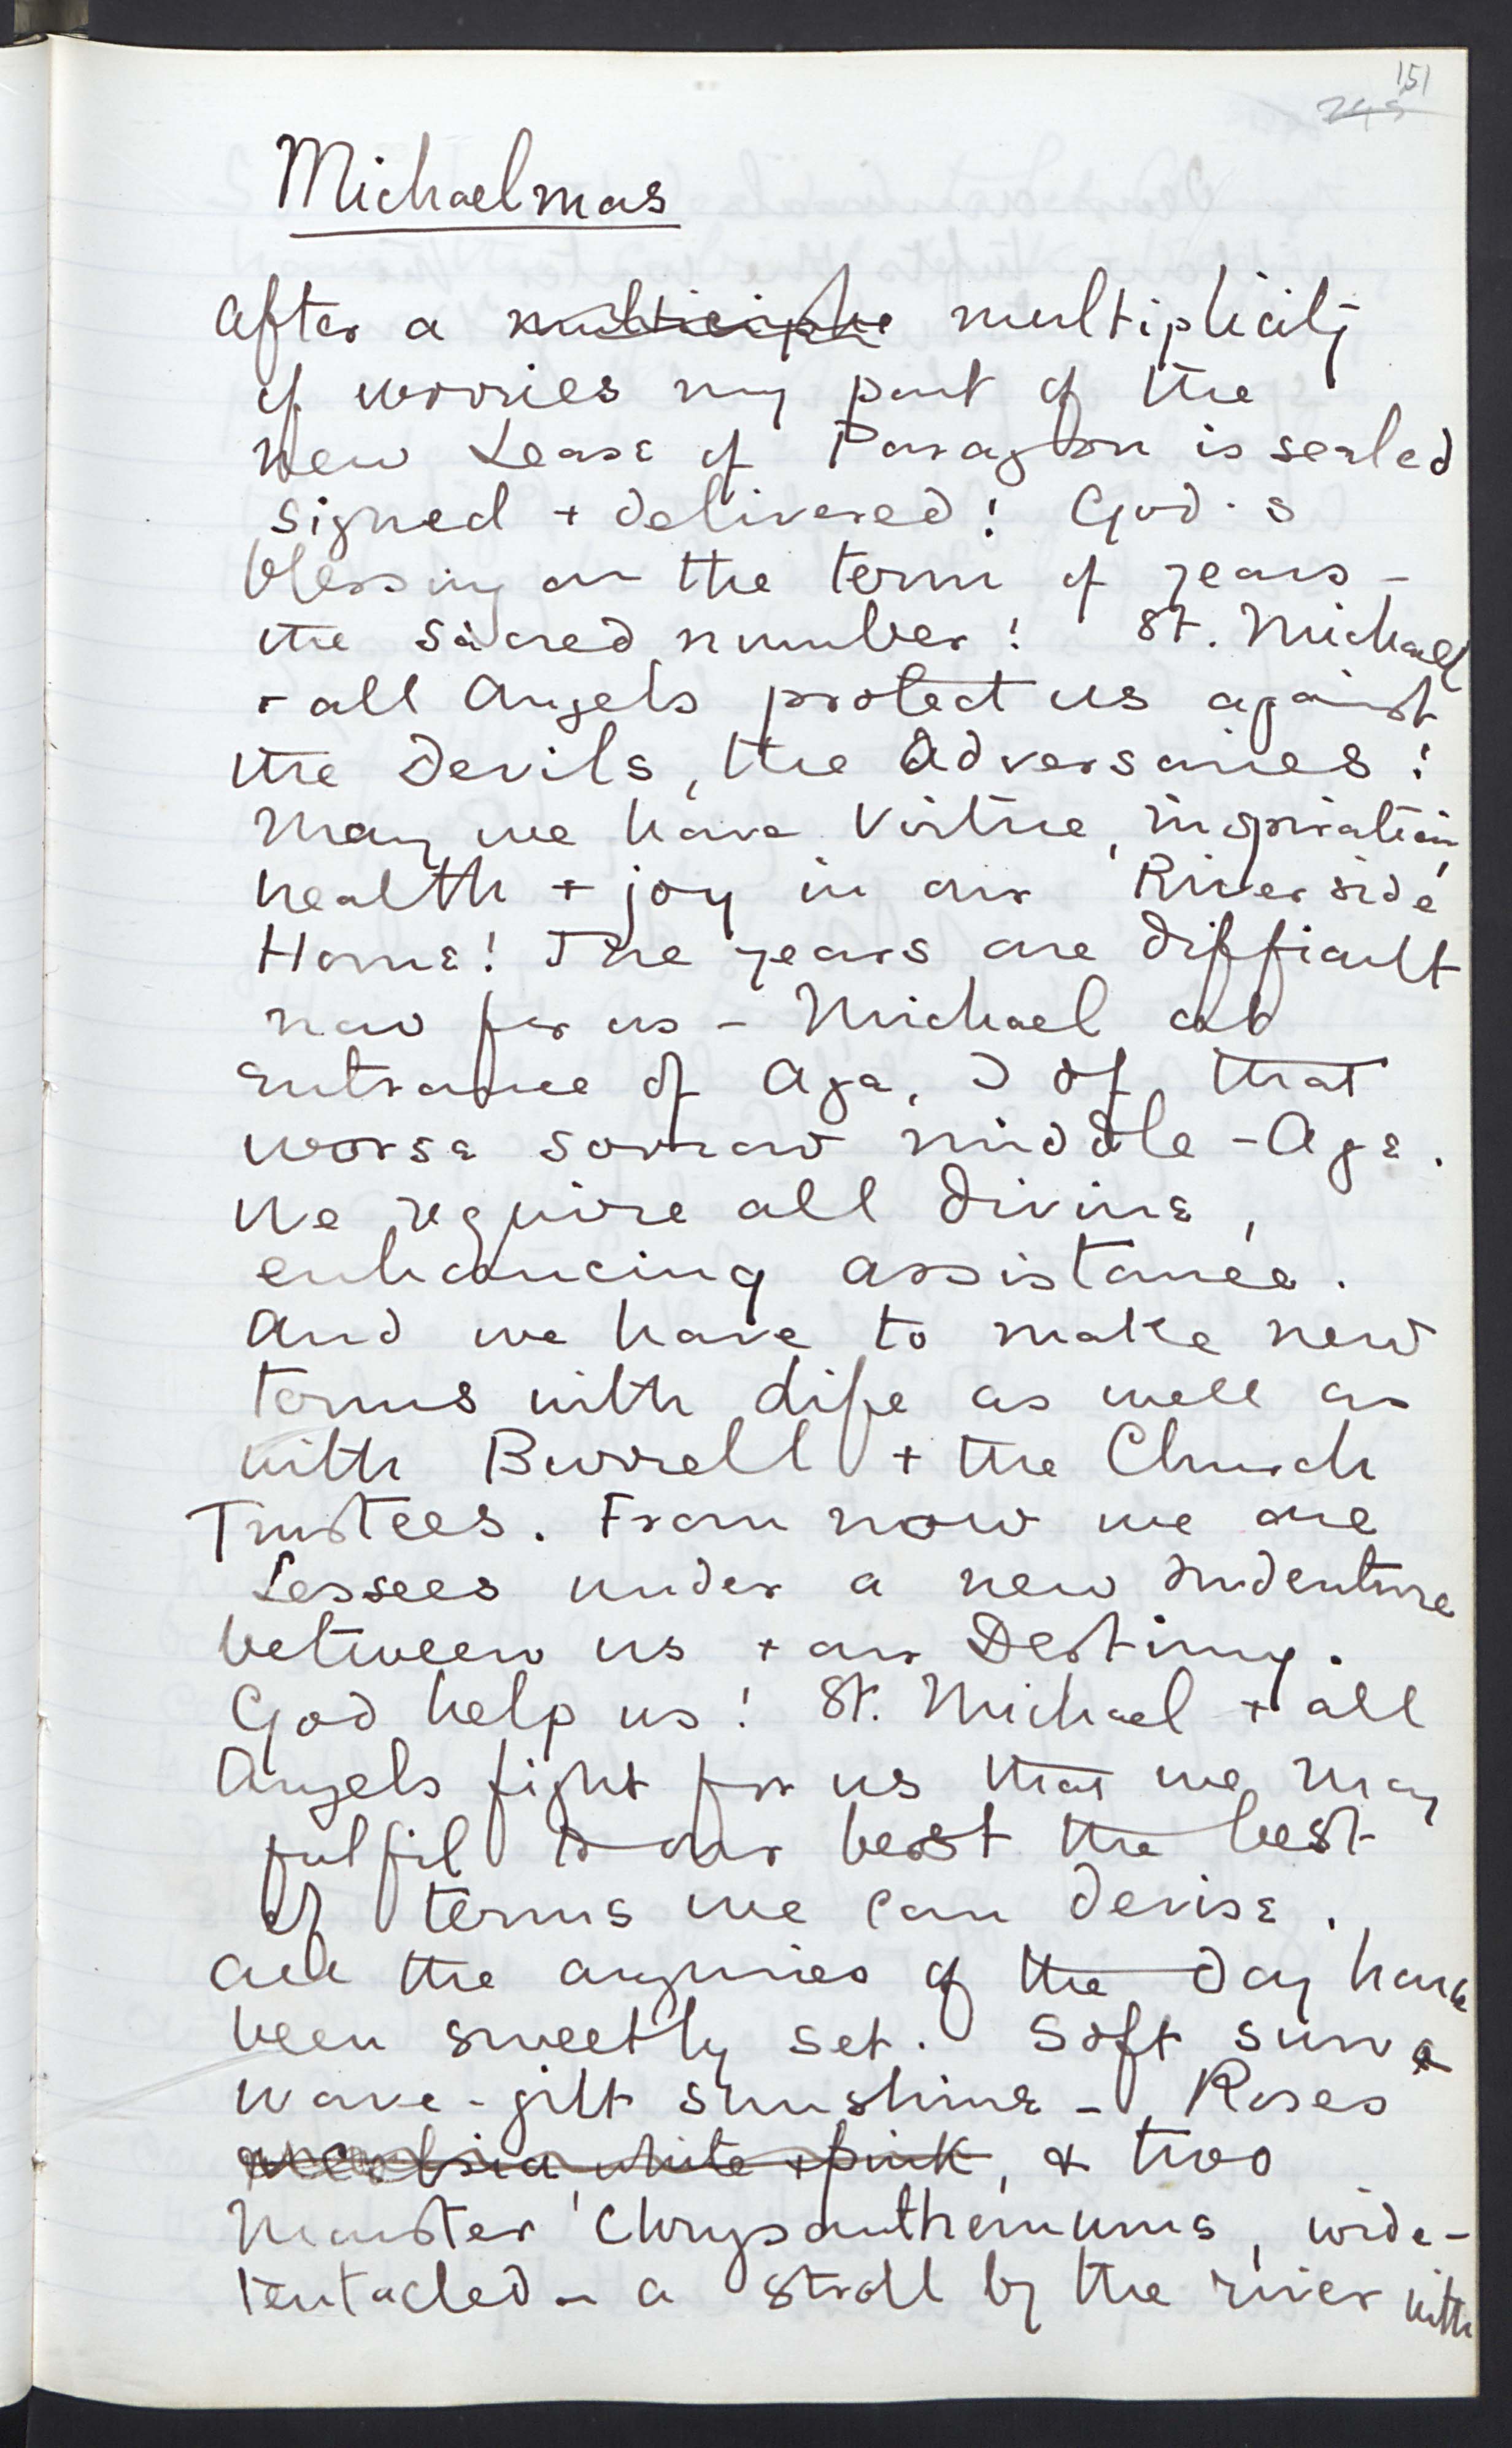 151
Michaelmas
After a multiplicity
of worries my part of the
New Lease of Paragon is sealed
signed + delivered! God's
blessing on the term of years -
the sacred number! St. Michael
+ all Angels protect us against
the Devils, the Adversaries!
May we have Virtue, inspiration,
health + joy in our Riverside
Home! The years are difficult
now for us - Michael at
entrance of Age, I of that
worse sorrow middle-Age.
We require all divine,
enhancing assistance.
And we have to make new
terms with life as well as
with Burrell + the Church
Trustees. From now we are
Lessees under a new Indenture
between us + our Destiny.
God help us! St. Michael + all
Angels fight for us that we may
fulfil to our best the best
of terms we can devise.
All the auguries of the day have
been sweetly set. Soft sun &
wave-gilt sunshine - Roses
white + pink, & two
Monster Chrysanthemums, wide-
tentacled - a stroll by the river with